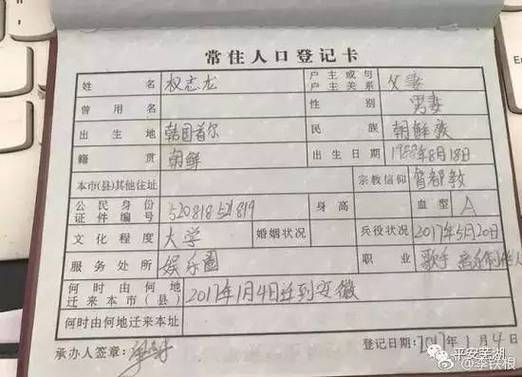 常住人口登记卡
姓名 权志龙 户主或与户主关系 父妻
曾用名 性别 男妻
出生地 韩国首尔 民族 朝鲜族
籍贯 朝鲜 出生日期 1988年8月18日
本市(县)其他住址 宗教信仰 督都教
公民身份证件编号 身高 血型 A
文化程度 大学 婚姻状况 兵役状况 2017年5月20日
服务处所 娱乐圈 职业 歌手 音乐制作人
何时由何地迁来本市(县) 2017年1月4日迁到安徽
何时由何地迁来本址
承办人签章: 登记日期:2017年1月4日
平安芜湖
@李铁根
En